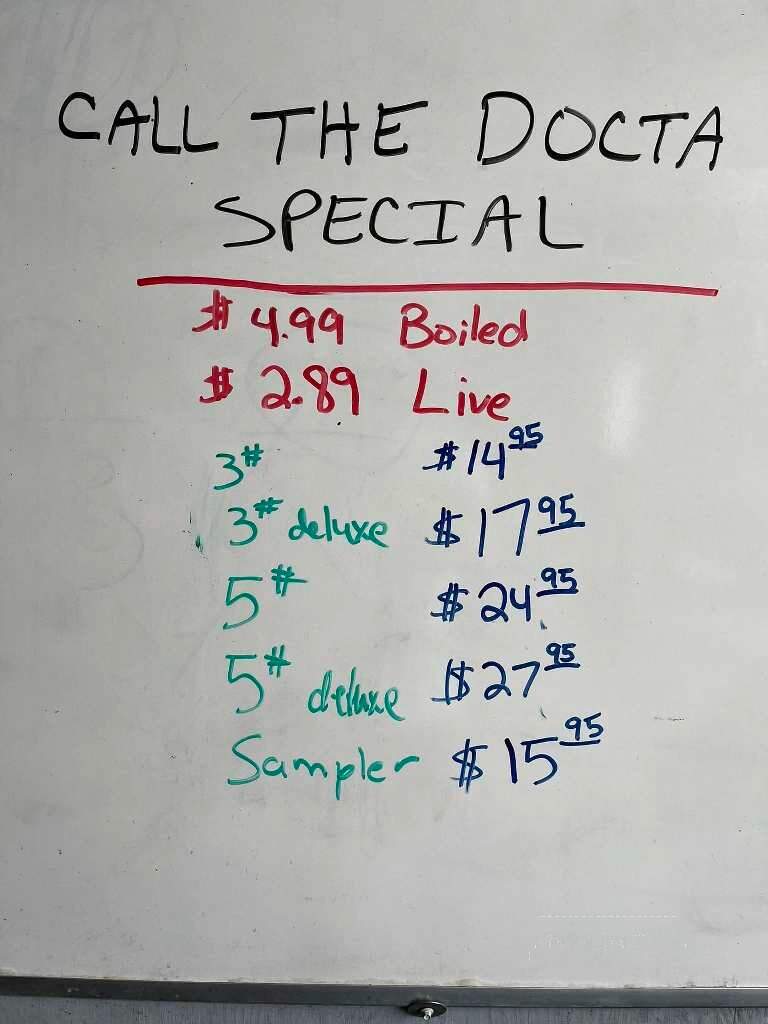 CALL THE DOCTA
SPECIAL
$ 4.99 Boiled
$ 2.89 Live
3# $14 95
3# deluxe $17 95
5# $24 95
5# deluxe $27 95
Sampler $15 95